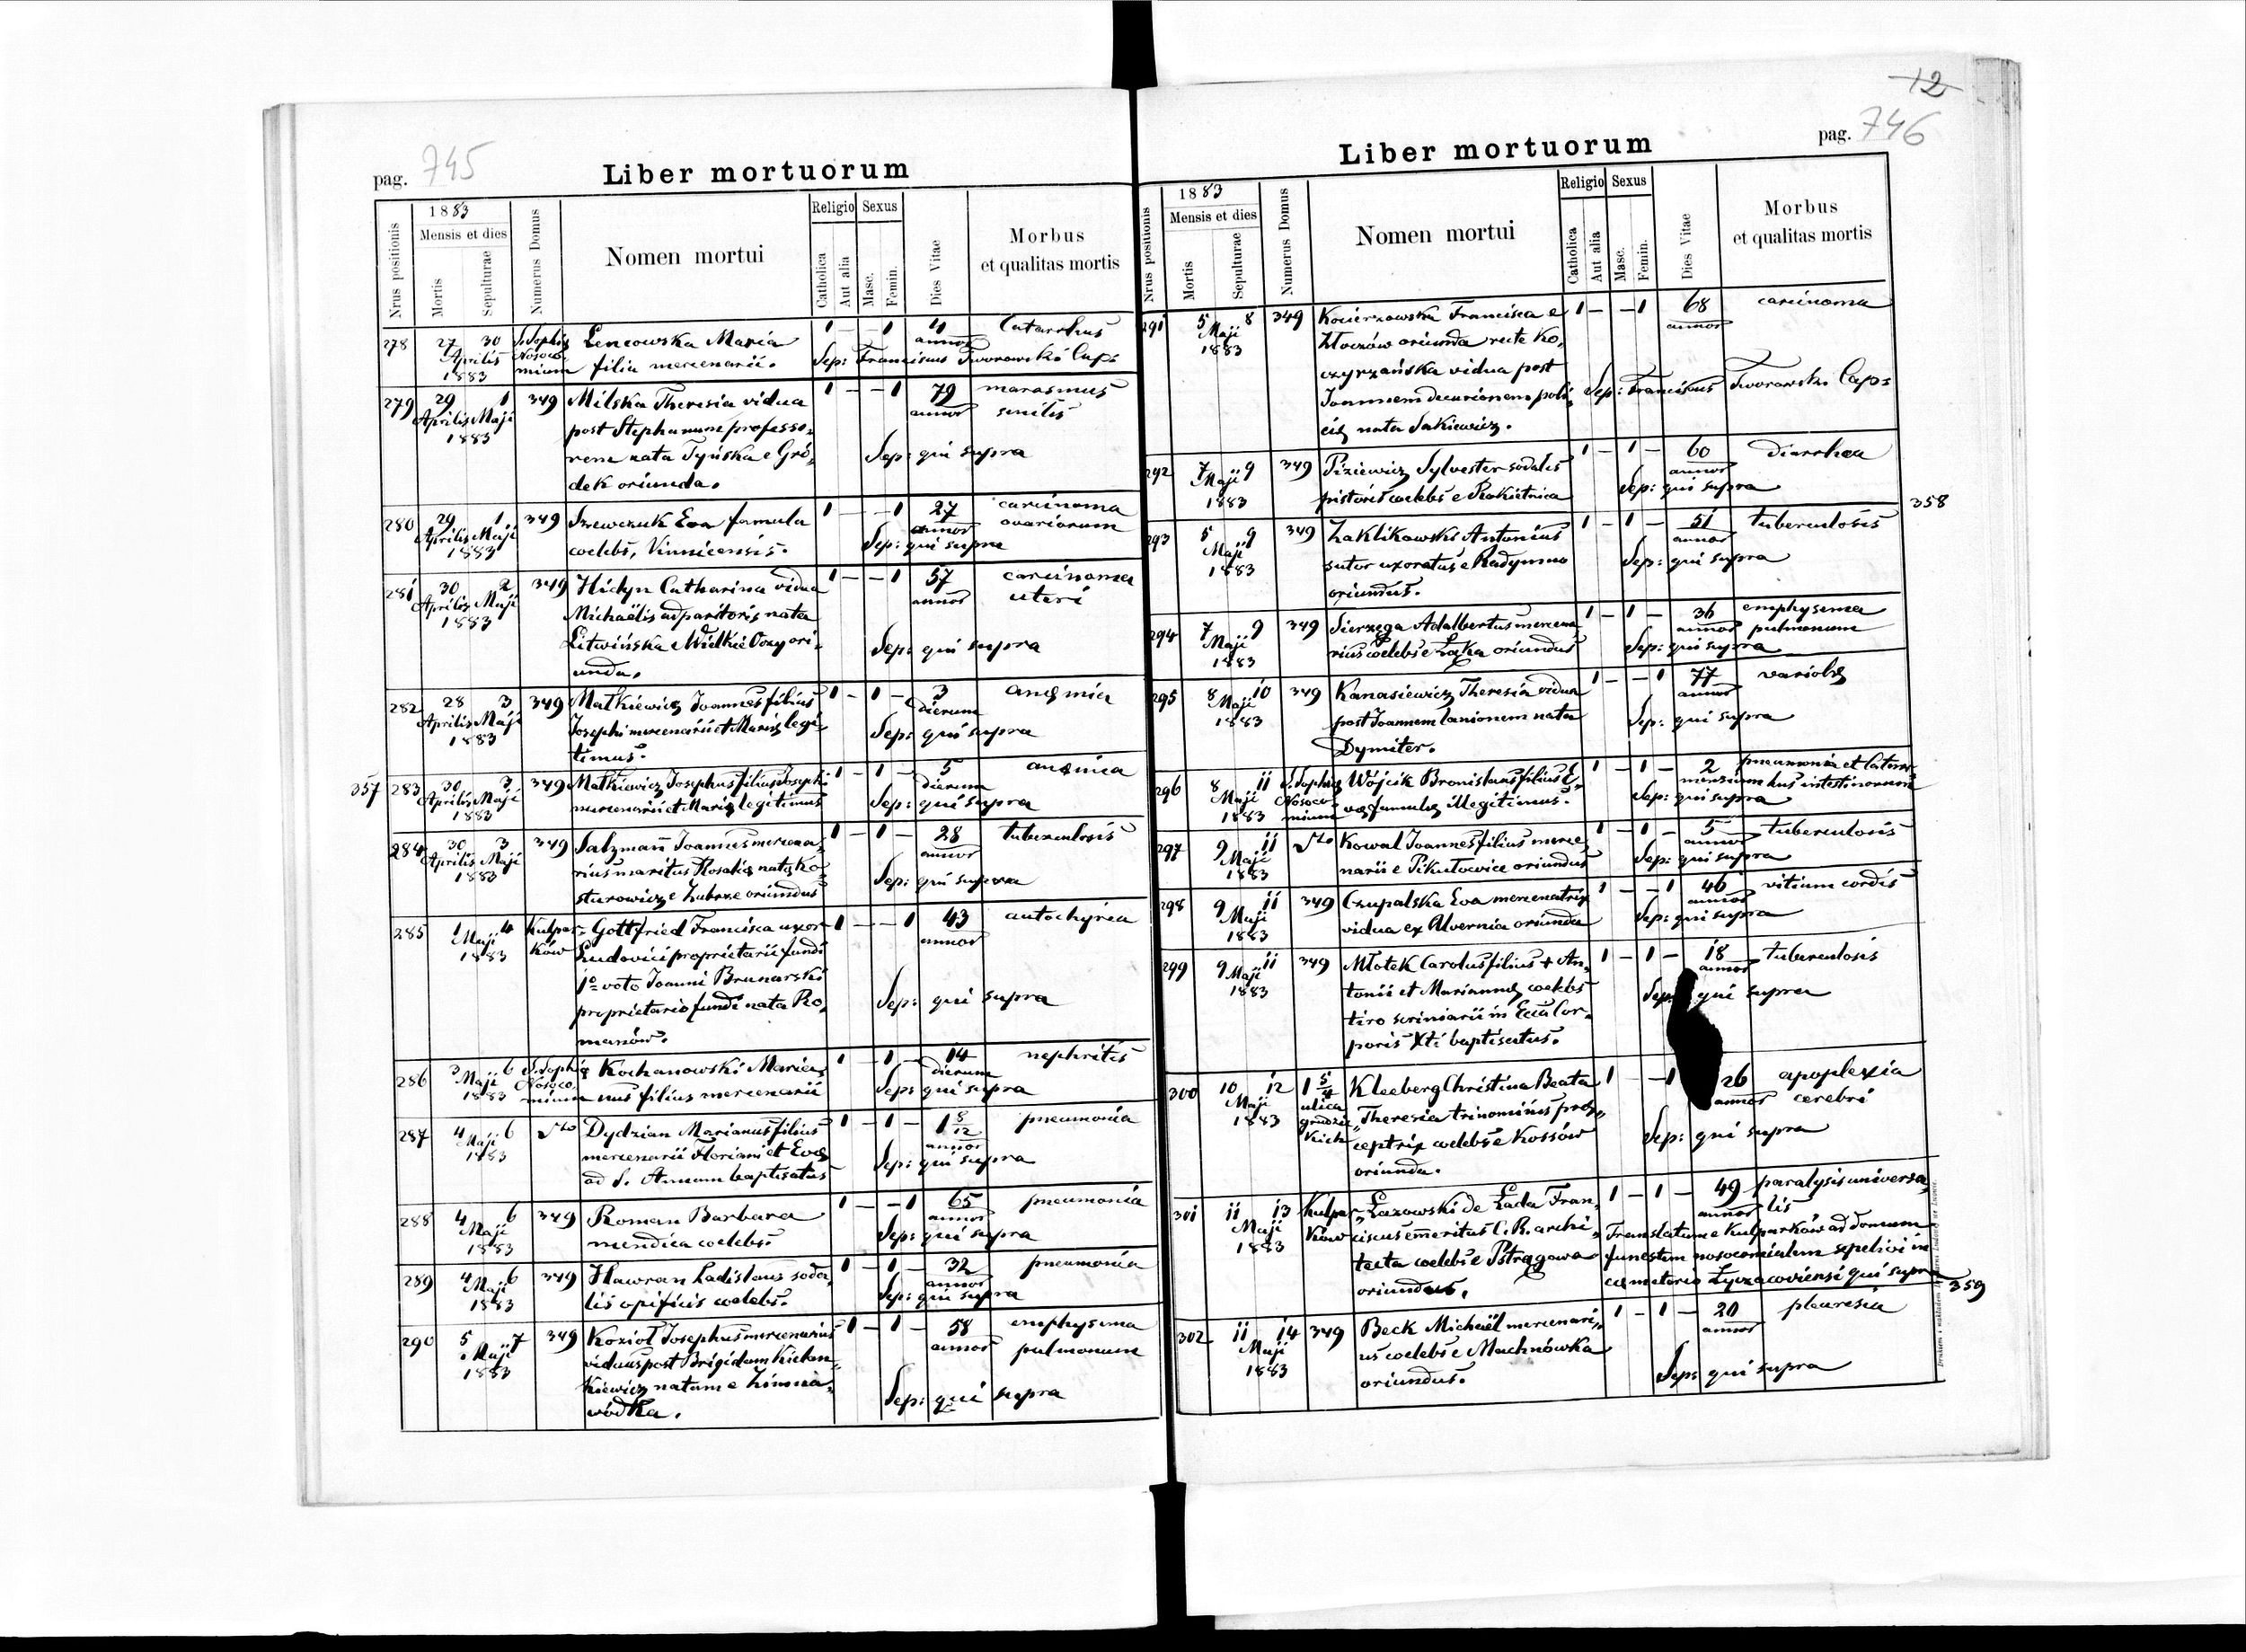 pag. 745
Liber mortuorum
Nrus positionis
1883
Mensis et dies
Mortis
Sepulturae
Numerus Domus
Nomen mortui
Religio
Catholica
Aut alia
Sexus
Masc.
Femin.
Dies Vitae
Morbus
et qualitas mortis
278 27 30 S. Sophię Lencowska Maria 1 — — 1 4 Catarrhus
Aprilis Nosoco- filia mercenarii. annor
1883 mium Sep: Franciscus Tworowski Cap:
279 29 1 349 Milska Theresia vidua 1 — — 1 79 marasmus
Aprilis Maji post Stephanum professo- annor senilis
1883 rem nata Tyńska e Gró- Sep: qui supra
dek oriunda.
280 29 1 349 Szewczuk Eva famula 1 — — 1 27 carcinoma
Aprilis Maji coelebs, Vinnicensis. annor ovariorum
1883 Sep: qui supra
281 30 2 349 Hidyn Catharina vidua 1 — — 1 57 carcinoma
Aprilis Maji Michaëlis apparitoris nata annor uteri
1883 Litwińska e Wielkie Oczy ori- Sep: qui supra
unda.
282 28 3 349 Matkiewicz Joannes filius 1 — 1 — 3 anęmia
Aprilis Maji Josephi mercenarii et Marię legi- dierum
1883 timus. Sep: qui supra
357 283 30 3 349 Matkiewicz Josephus filius Josephi 1 — 1 — 5 anęmia
Aprilis Maji mercenarii et Marię legitimus dierum
1883 Sep: qui supra
284 30 3 349 Salzmann Joannes mercena- 1 — 1 — 28 tuberculosis
Aprilis Maji rius maritus Rosalię natę Ko- annor
1883 sturowicz e Zubrze oriundus Sep: qui supra
285 1 4 Kulpar- Gottfried Francisca uxor 1 — — 1 43 autochyria
Maji ków Ludovici proprietarii fundi annor
1883 1o voto Joanni Brunarski
proprietario fundi nata Ro- Sep: qui supra
manów.
286 3 6 S. Sophię Kochanowski Maria- 1 — 1 — 14 nephritis
Maji Nosoco- nus filius mercenarii dierum
1883 mium Sep: qui supra
287 4 6 Dto Dydzian Marianus filius 1 — 1 — 1 8/12 pneumonia
Maji mercenarii Floriani et Evę annor
1883 ad S. Annam baptisatus Sep: qui supra
288 4 6 349 Roman Barbara 1 — — 1 65 pneumonia
Maji mendica coelebs. annor
1883 Sep: qui supra
289 4 6 349 Hawran Ladislaus soda- 1 — 1 — 32 pneumonia
Maji lis opificis coelebs. annor
1883 Sep: qui supra
290 5 7 349 Kozioł Josephus mercenarius 1 — 1 — 58 emphysema
Maji viduus post Brigidam Kielan- annor pulmonum
1883 kiewicz natum e Zimna- Sep: qui supra
wódka.
12
pag. 746
Liber mortuorum
Nrus positionis
1883
Mensis et dies
Mortis
Sepulturae
Numerus Domus
Nomen mortui
Religio
Catholica
Aut alia
Sexus
Masc.
Femin.
Dies Vitae
Morbus
et qualitas mortis
291 5 8 349 Kocierzowska Francisca e 1 — — 1 68 carcinoma
Maji Złoczów oriunda recte Ko- annor
1883 czyrzańska vidua post
Joannem decurionem poli- Sep: Franciscus Tworowski Cap:
cię nata Sakiewicz.
292 7 9 349 Piziewicz Sylvester sodalis 1 — 1 — 60 diarrhea
Maji pistoris coelebs e Rokietnica annor
1883 Sep: qui supra
358
293 5 9 349 Zaklikowski Antonius 1 — 1 — 51 tuberculosis
Maji sutor uxoratus e Radymno annor
1883 oriundus. Sep: qui supra
294 7 9 349 Sierzęga Adalbertus mercena- 1 — 1 — 36 emphysema
Maji rius coelebs e Łąka oriundus annor pulmonum
1883 Sep: qui supra
295 8 10 349 Kanasiewicz Theresia vidua 1 — — 1 77 variolę
Maji post Joannem lanionem nata annor
1883 Dymiter. Sep: qui supra
296 8 11 S. Sophię Wójcik Bronislaus filius E- 1 — 1 — 2 pneumonia et Catarr-
Maji Nosoco- vę famulę illegitimus. mensium hus intestinorum
1883 mium Sep: qui supra
297 9 11 Dto Kowal Joannes filius merce- 1 — 1 — 5 tuberculosis
Maji narii e Pikułowice oriundus annor
1883 Sep: qui supra
298 9 11 349 Czupalska Eva mercenatrix 1 — — 1 46 vitium cordis
Maji vidua ex Alvernia oriunda annor
1883 Sep: qui supra
299 9 11 349 Młotek Carolus filius + An- 1 — 1 — 18 tuberculosis
Maji tonii et Mariannę coelebs annor
1883 tiro scriniarii in Eccla Cor- Sep: qui supra
poris Xti baptisatus.
300 10 12 1 5/4 Kleeberg Christina Beata 1 — 1 26 apoplexia
Maji ulica Theresia trinominis pręc- annor cerebri
1883 grodzic- ceptrix coelebs e Kossów Sep: qui supra
kich oriunda.
301 11 13 Kulpar- Łazowski de Łada Fran- 1 — 1 — 49 paralysis universa-
Maji ków ciscus emeritus C. R. archi- annor lis
1883 tecta coelebs e Pstrągowa Translatum e Kulparków ad domum
oriundus. funestem nosocomialem sepelivi in
cęmeterio Łyczacoviensi qui supra
359
302 11 14 349 Beck Michaël mercenari- 1 — 1 — 20 pleuresia
Maji us coelebs e Machnówka annor
1883 oriundus. Sep: qui supra